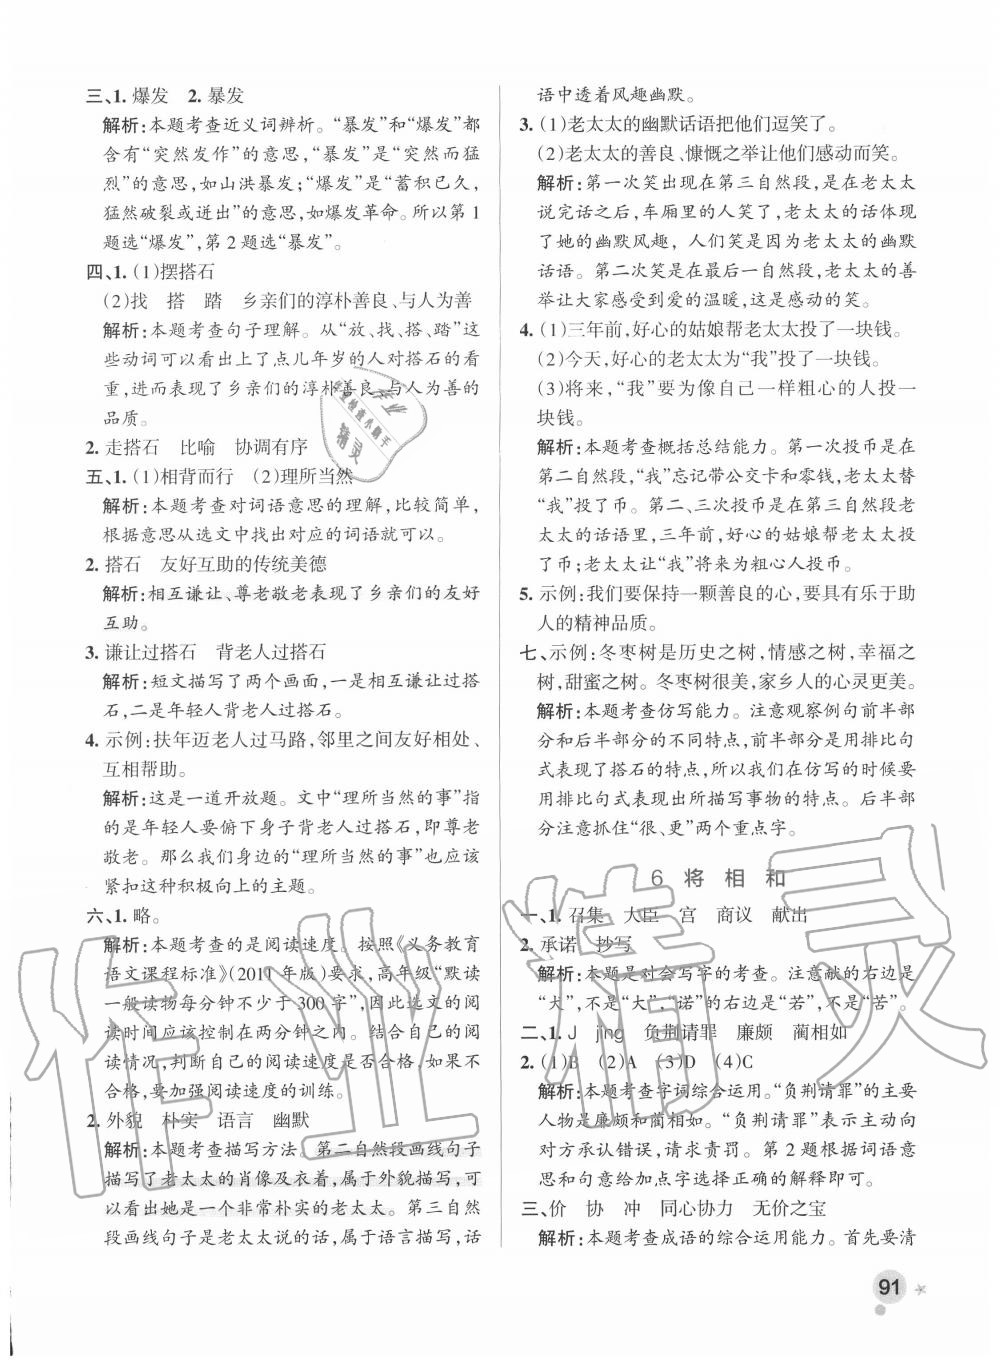 三、1. 爆发　2. 暴发
解析:本题考查近义词辨析。“暴发”和“爆发”都
含有“突然发作”的意思,“暴发”是“突然而猛
烈”的意思,如山洪暴发;“爆发”是“蓄积已久,
猛然破裂或迸出”的意思,如爆发革命。所以第 1
题选“爆发”,第 2 题选“暴发”。
四、1. (1)摆搭石
(2)找　搭　踏　乡亲们的淳朴善良、与人为善
解析:本题考查句子理解。从“放、找、搭、踏”这
些动词可以看出上了点儿年岁的人对搭石的看
重,进而表现了乡亲们的淳朴善良、与人为善的
品质。
2. 走搭石　比喻　协调有序
五、1. (1)相背而行　(2)理所当然
解析:本题考查对词语意思的理解,比较简单,
根据意思从选文中找出对应的词语就可以。
2. 搭石　友好互助的传统美德
解析:相互谦让、尊老敬老表现了乡亲们的友好
互助。
3. 谦让过搭石　背老人过搭石
解析:短文描写了两个画面,一是相互谦让过搭
石,二是年轻人背老人过搭石。
4. 示例:扶年迈老人过马路,邻里之间友好相处、
互相帮助。
解析:这是一道开放题。文中“理所当然的事”指
的是年轻人要俯下身子背老人过搭石,即尊老
敬老。那么我们身边的“理所当然的事”也应该
紧扣这种积极向上的主题。
六、1. 略。
解析:本题考查的是阅读速度。按照《义务教育
语文课程标准》(2011 年版)要求,高年级“默读
一般读物每分钟不少于 300 字”,因此选文的阅
读时间应该控制在两分钟之内。根据自己的阅
读情况,判断自己的阅读速度是否合格,如果不
合格,要加强阅读速度的训练。
2. 外貌　朴实　语言　幽默
解析:本题考查描写方法。第二自然段画线句子
描写了老太太的肖像及衣着,属于外貌描写,可
以看出她是一个非常朴实的老太太。第三自然
段画线句子是老太太说的话,属于语言描写,话
语中透着风趣幽默。
3. (1)老太太的幽默话语把他们逗笑了。
(2)老太太的善良、慷慨之举让他们感动而笑。
解析:第一次笑出现在第三自然段,是在老太太
说完话之后,车厢里的人笑了,老太太的话体现
了她的幽默风趣,人们笑是因为老太太的幽默
话语。第二次笑是在最后一段,是老太太的善
举让大家感受到爱的温暖,这是感动的笑。
4. (1)三年前,好心的姑娘帮老太太投了一块钱。
(2)今天,好心的老太太为“我”投了一块钱。
(3)将来,“我”要为像自己一样粗心的人投一
块钱。
解析:本题考查概括总结能力。第一次投币是在
第二自然段,“我”忘记带公交卡和零钱,老太太替
“我”投了币。第二、三次投币是在第三自然段老
太太的话语里,三年前,好心的姑娘帮老太太投
了币;老太太让“我”将来为粗心人投币。
5. 示例:我们要保持一颗善良的心,要具有乐于助
人的精神品质。
七、示例:冬枣树是历史之树,情感之树,幸福之
树,甜蜜之树。冬枣树很美,家乡人的心灵更美。
解析:本题考查仿写能力。注意观察例句前半部
分和后半部分的不同特点,前半部分是用排比句
式表现了搭石的特点,所以我们在仿写的时候要
用排比句式表现出所描写事物的特点。后半部
分注意抓住“很、更”两个重点字。
6　将　相　和
一、1. 召集　大臣　宫　商议　献出
2. 承诺　抄写
解析:本题是对会写字的考查。注意献的左边
是“大”,不是“大”,“诺”的右边是“若”,不是“苦”。
二、1. J　jīng　负荆请罪　廉颇　蔺相如
2. (1)B　(2)A　(3)D　(4)C
解析:本题考查字词综合运用。“负荆请罪”的主要
人物是廉颇和蔺相如。“负荆请罪”表示主动向
对方承认错误,请求责罚。第 2 题根据词语意
思和句意给加点字选择正确的解释即可。
三、价　协　冲　同心协力　无价之宝
解析:本题考查成语的综合运用能力。首先要清
91
作业精灵
作业
检查小助手
精灵